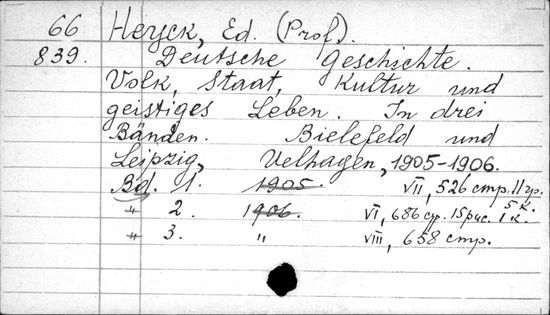 66 Heyck, Ed. (Prof).
839. Deutsche Geschichte.
Volk, Staat, Kultur und
geistiges Leben. In drei
Bänden. Bielefeld und
Leipzig, Velhagen, 1905-1906.
Bd. 1. 1905. VII, 526 стр. 11 гр.
5 к.
" 2. 1906. VI, 686 ср. 15 рис. 1 к.
" 3. " VIII, 658 стр.